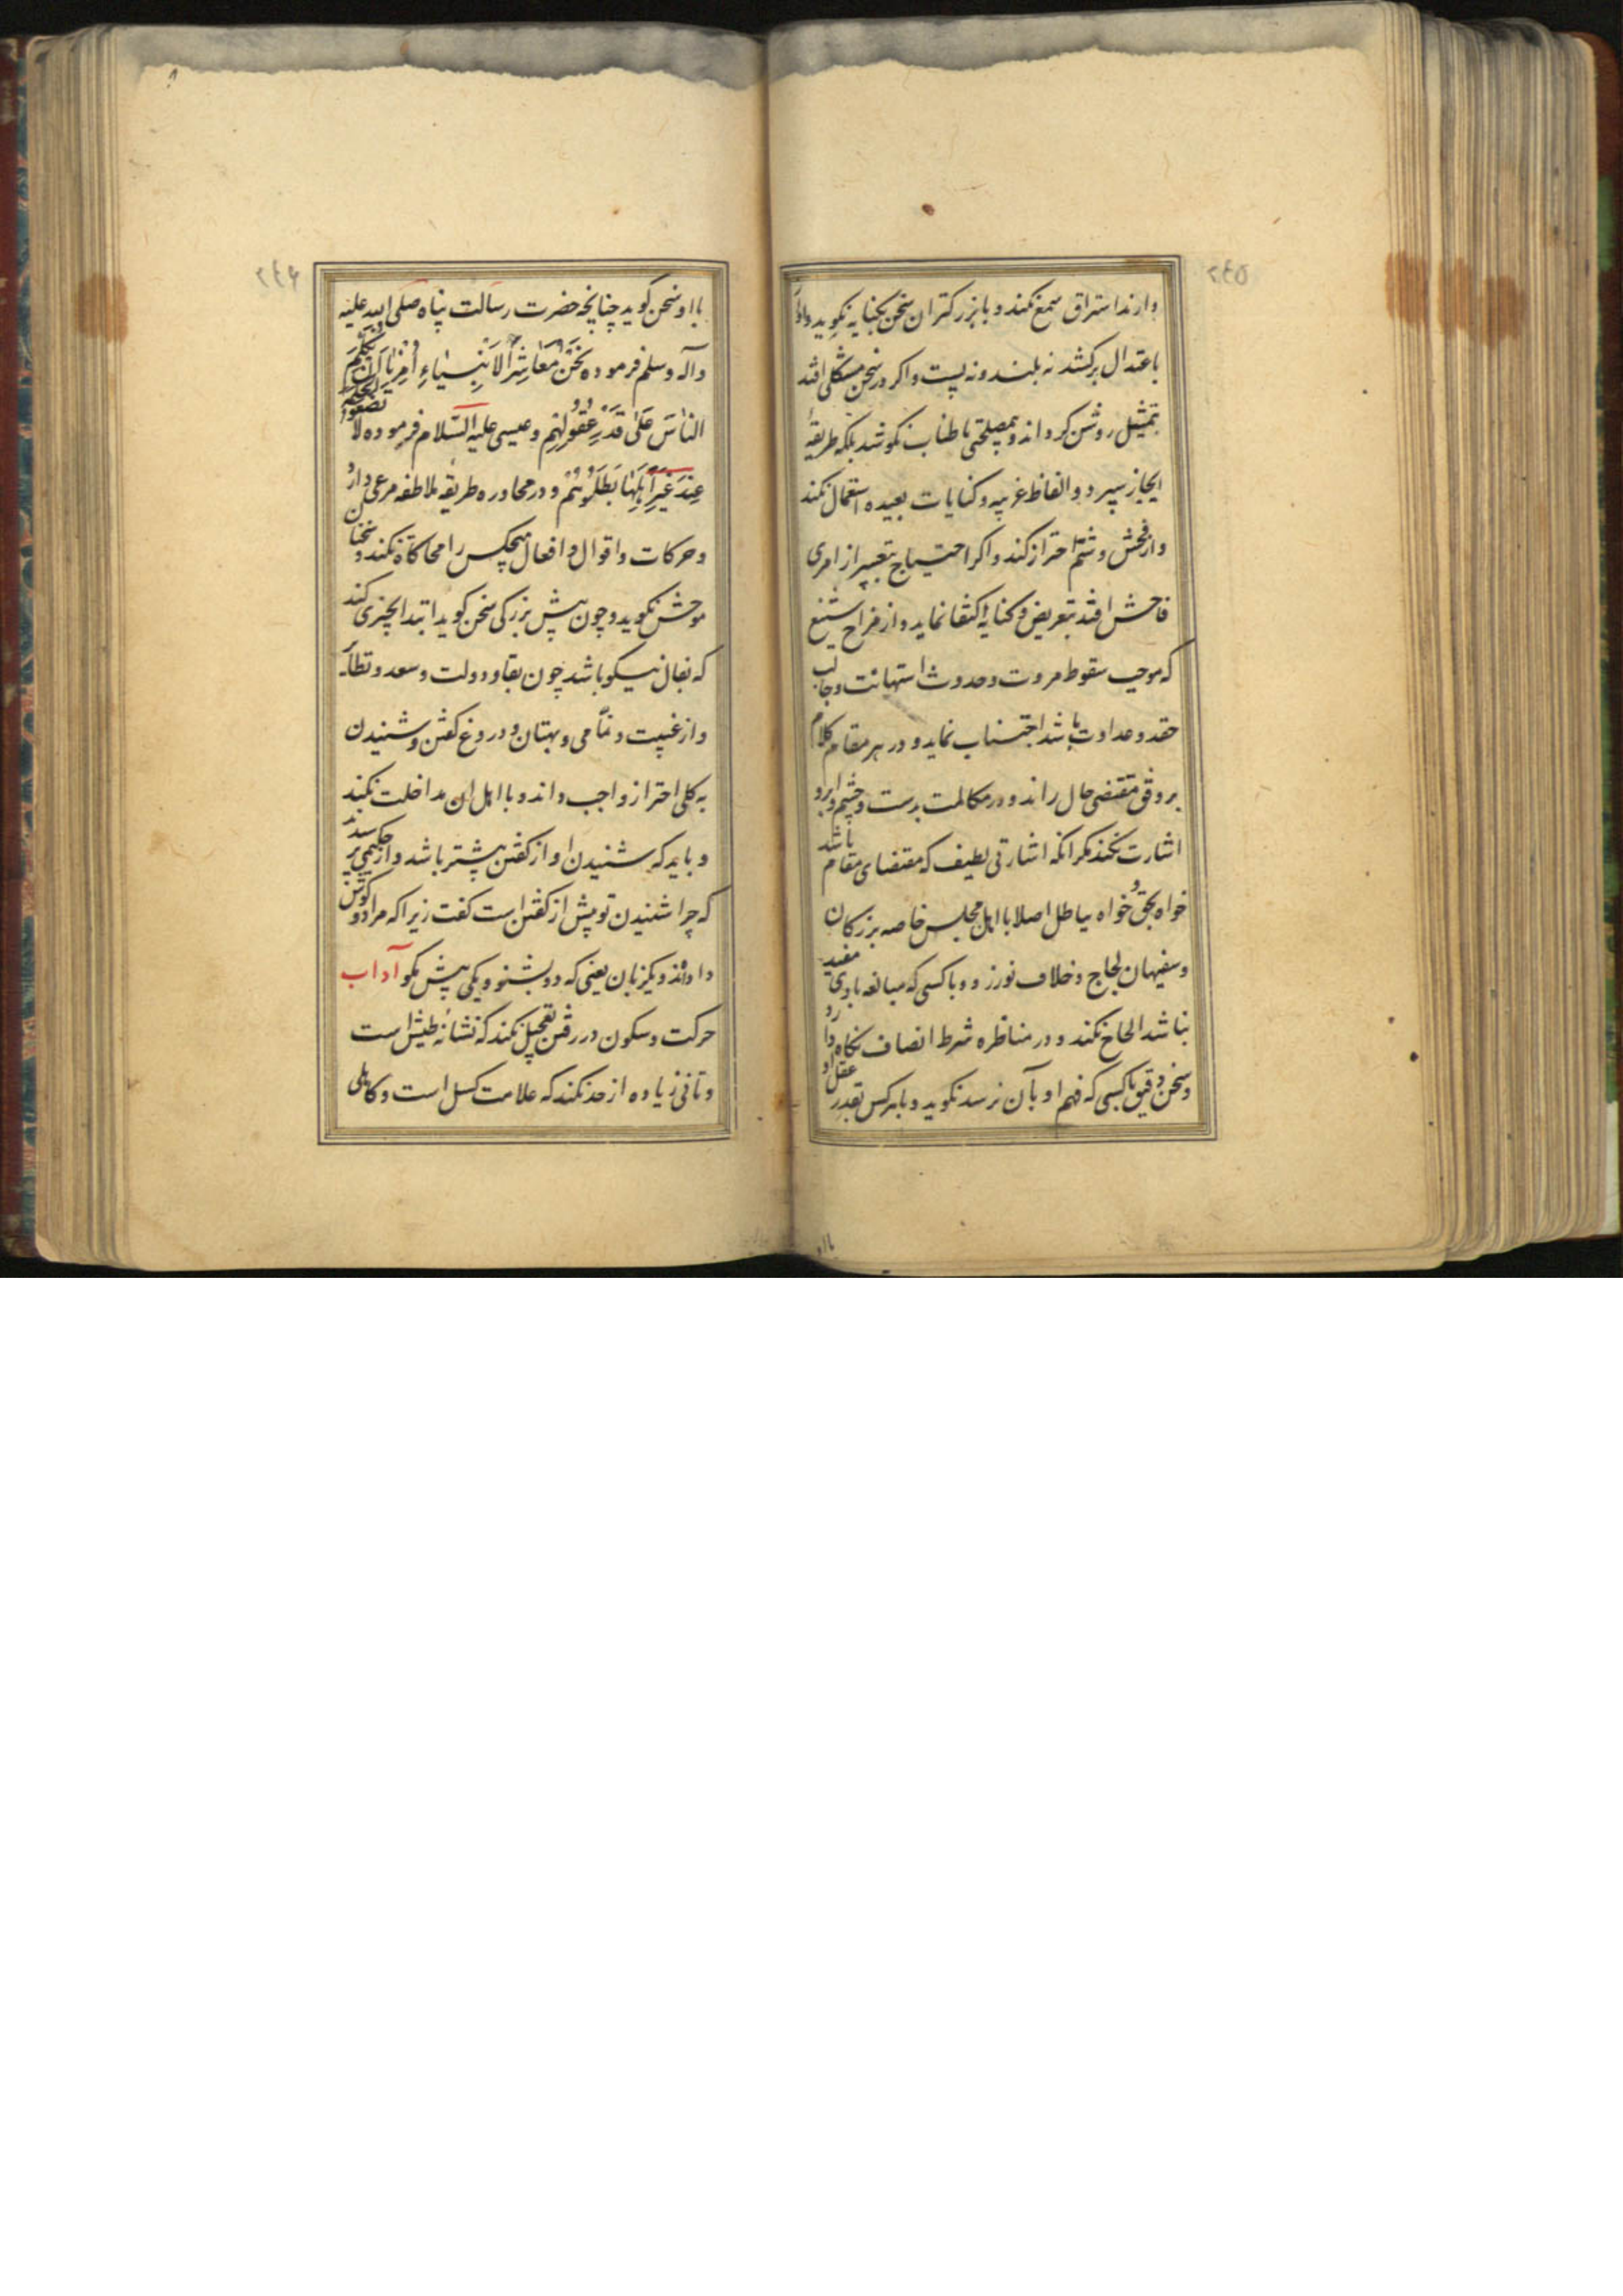 ۲٤٥
دارند استراق سمع نکند و با بزرکتران سخن بکنایه نکوید و آواز
باعتدال برکشد نه بلند و نه پست و اکر در سخن مشکلی افتد
بتمثیل روشن کرداند و بمصلحتی باطناب نکوشد بلکه طریقهٔ
ایجاز سپرد و الفاظ غریبه و کنایات بعیده استعمال نکند
و از فحش و شتم احتراز کند و اکر احتیاج بتعبیر از امری
فاحش افتد بتعریض و کنایه اکتفا نماید و از مزاح شنیع
که موجب سقوط مروت و حدوث استهانت و جالب
حقد و عداوت باشد اجتناب نماید و در هر مقام کلام
بر وفق مقتضی حال راند و در مکالمت بدست و چشم و ابرو
اشارت نکند مکر انکه اشارتی لطیف که مقتضای مقام باشد
و خواه بحق خواه بباطل اصلا با اهل مجلس خاصه بزرکان
و سفیهان لجاج و خلاف نورزد و با کسی که مبالغه با وی مفید
نباشد الحاح نکند و در مناظره شرط انصاف نکاه دارد
و سخن دقیق با کسی که فهم او بآن نرسد نکوید و با هر کس بقدر عقل او
با او
۲٤۶
با او سخن کوید چنانچه حضرت رسالت پناه صلی الله علیه
و آله و سلم فرموده نَحْنُ مَعَاشِرَ الاَنْبِیَاءِ اُمِرْنَا اَنْ نُکَلِّمَ
النَّاسَ عَلٰی قَدْرِ عُقُولِهِمْ و عیسی علیه السّلام فرموده لا تضعوا الحکمة
عِنْدَ غَیْرِ اَهْلِهَا فَتَظْلِمُوهُمْ و در محاوره طریقه ملاطفه مرعی دارد
و حرکات و اقوال و افعال هیچکس را محاکاة نکند و سخنان
موحش نکوید و چون پیش بزرکی سخن کوید ابتدا بچیزی کند
که بفال نیکو باشد چون بقا و دولت و سعد و نظایر
و از غیبت و نمّامی و بهتان و دروغ کفتن و شنیدن
به کلی احتراز واجب داند و با اهل ان مداخلت نکند
و باید که شنیدن او از کفتن بیشتر باشد و از حکیمی پرسیدند
که چرا شنیدن تو بیش از کفتن است کفت زیرا که مرا دو کوش
داده‌اند و یکزبان یعنی که دو بشنو و یکی بیش مکو آداب
حرکت و سکون در رفتن تعجیل نکند که نشانهٔ طیش است
و تانی زیاده از حد نکند که علامت کسل است و کاهلی